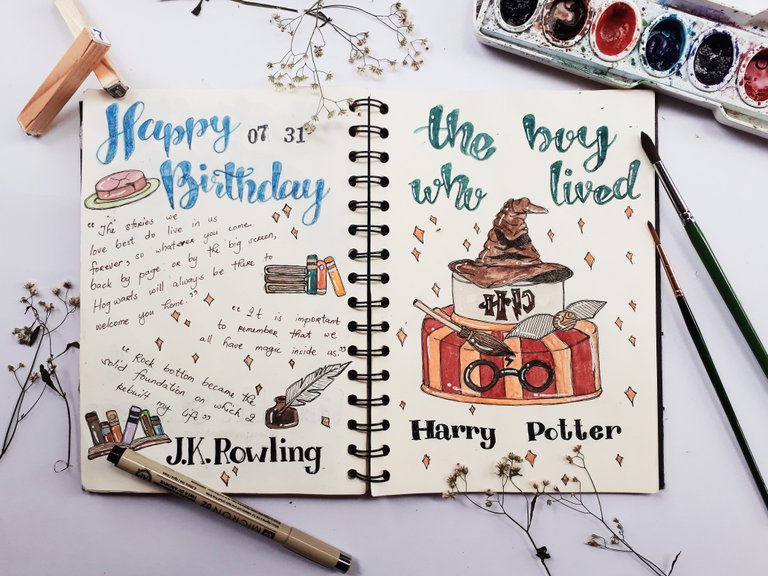 Happy 07 31
Birthday
"The stories we
love best do live in us
forever, so whatever you come
back by page or by the big screen,
Hogwards will always be there to
welcome you home."
"It is important
to remember that we
all have magic inside us."
"Rock bottom became the
solid foundation on which I
rebuilt my life"
J.K.Rowling
the boy
who lived
H.P
Harry Potter
MICRON